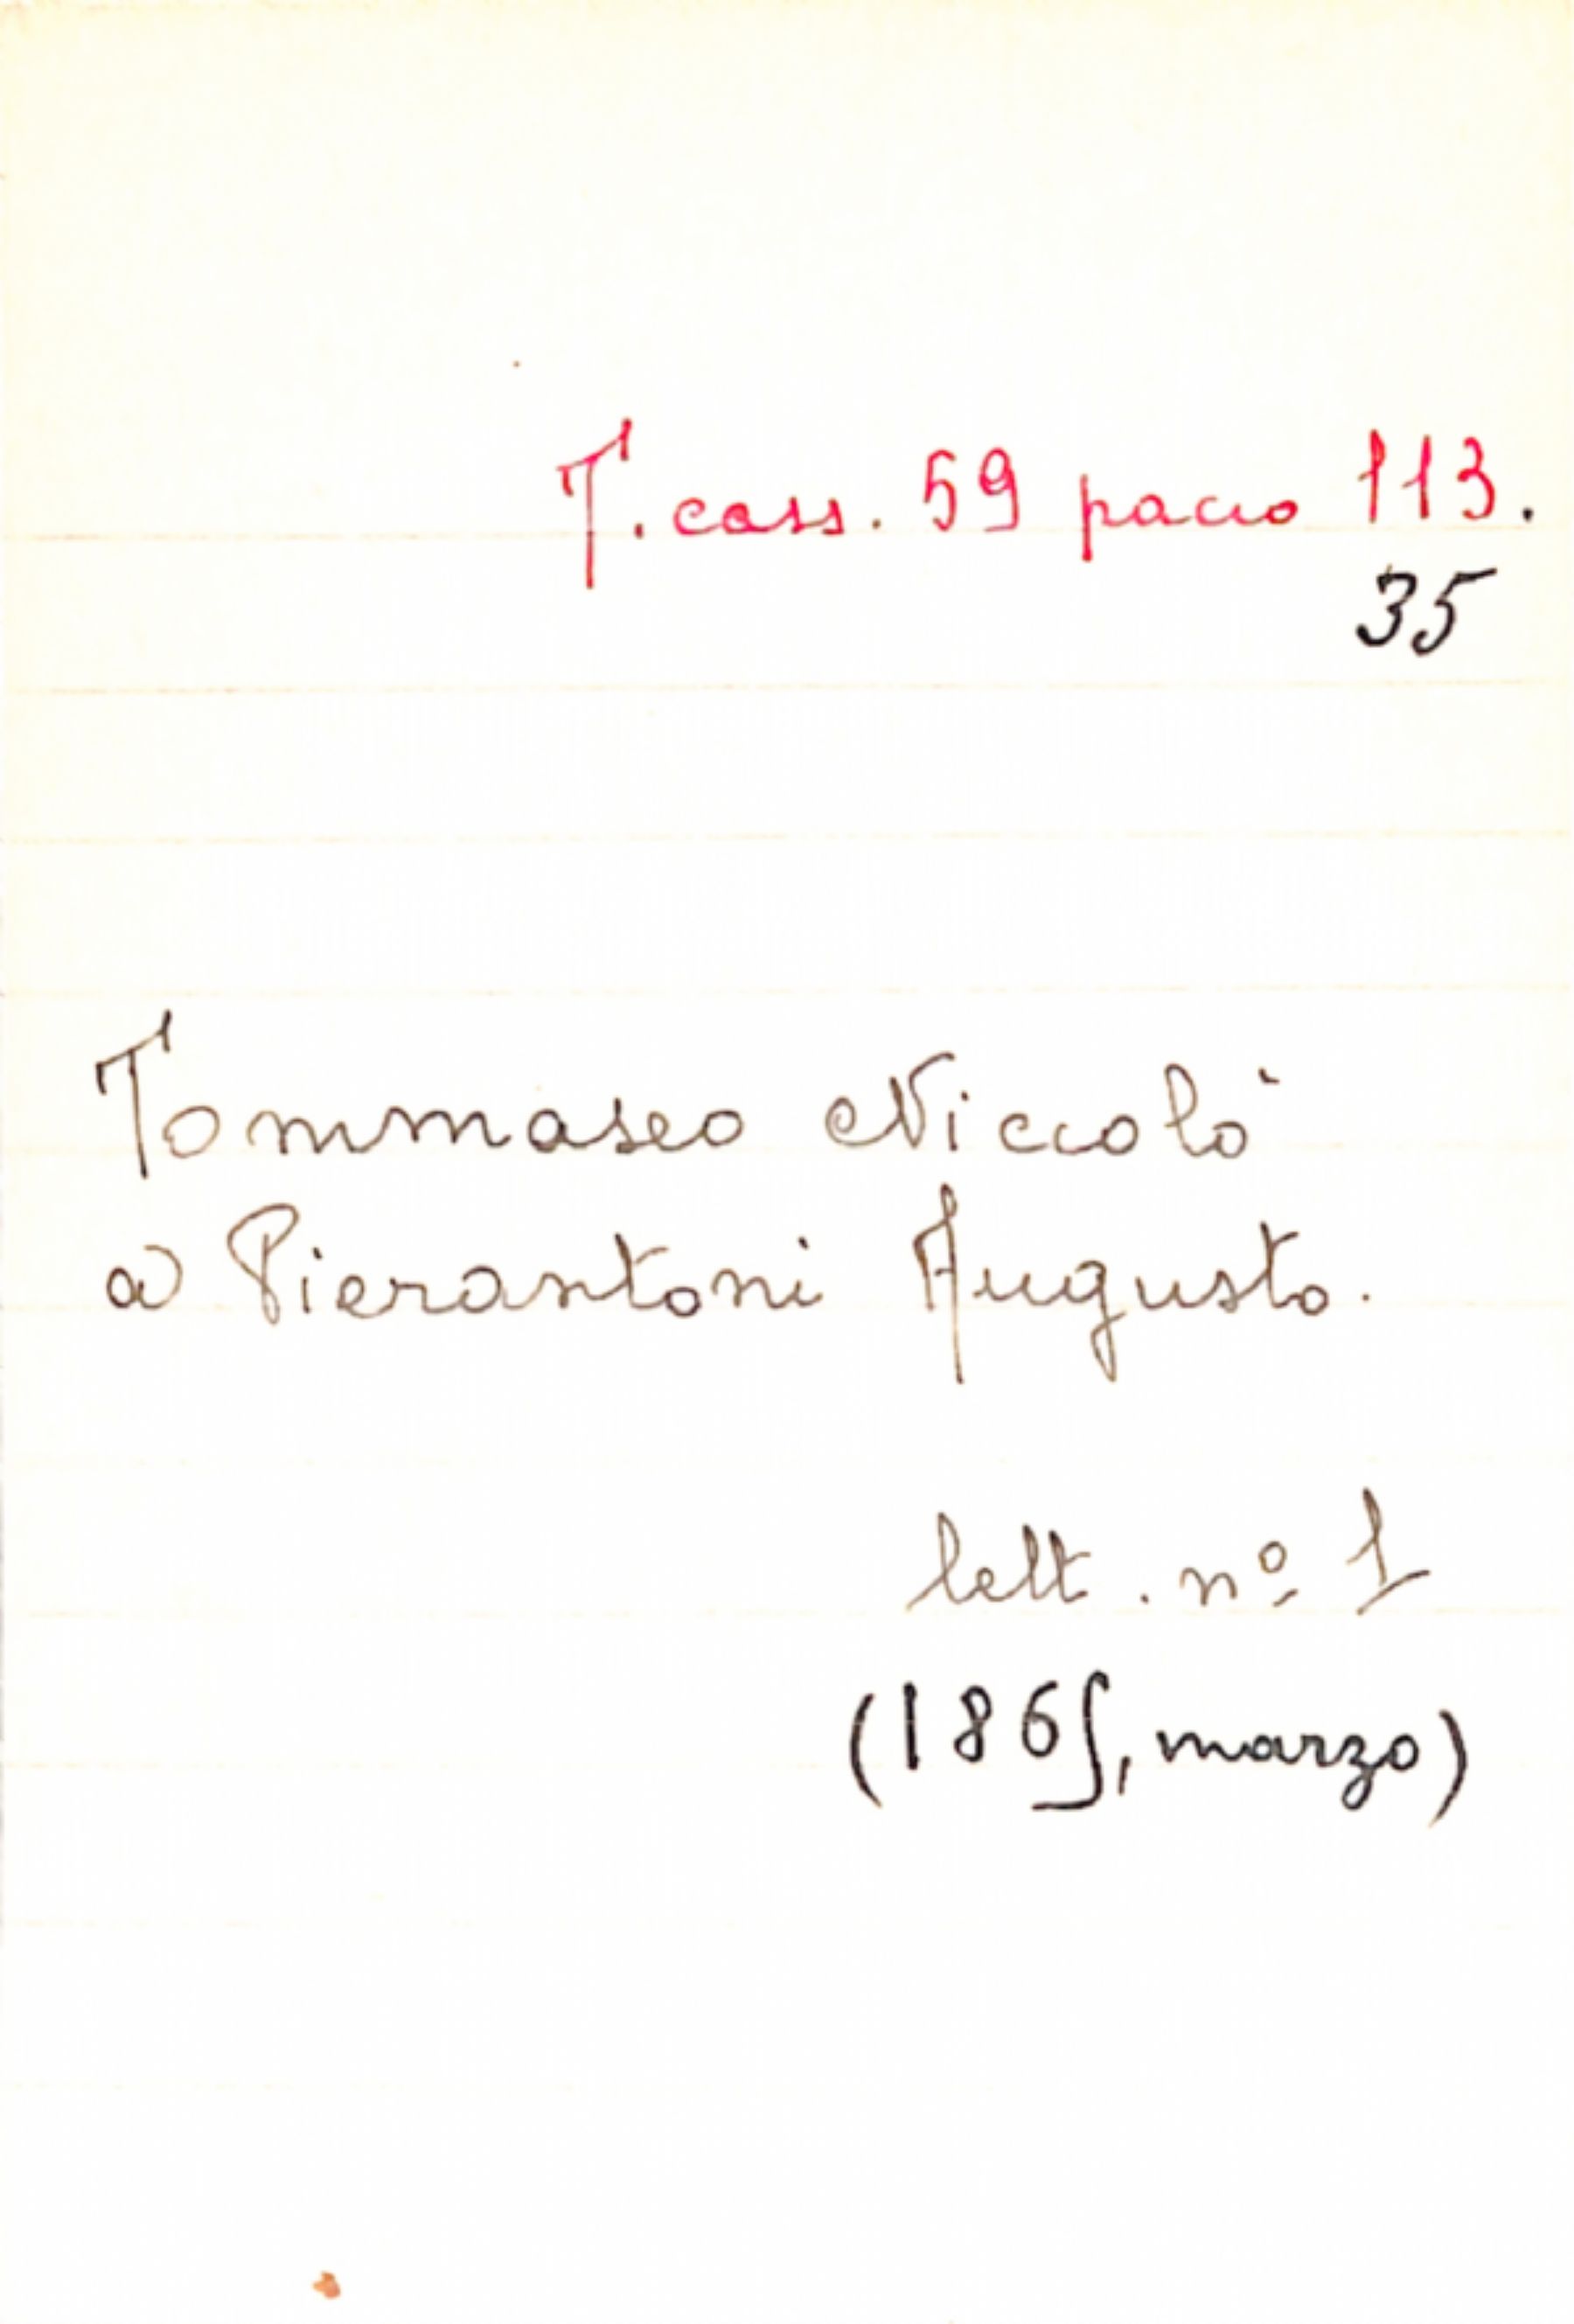 T. cass. 59 pacco 113.
35
Tommaseo Niccolò
a Pierantoni Augusto.
lett. nº 1
(1865, marzo)